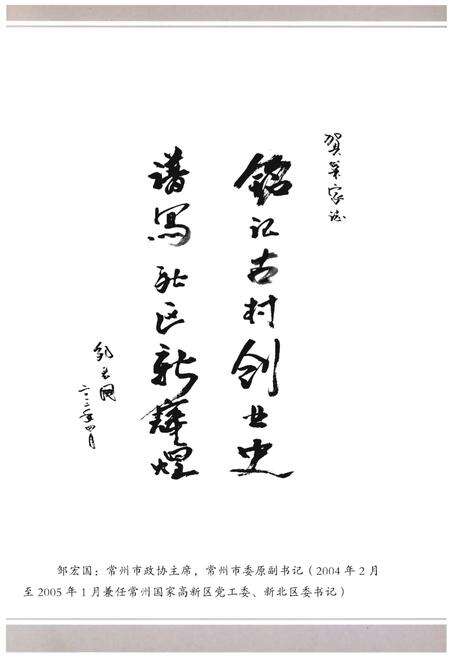 贺巢家志
铭记古村创业史
谱写社区新辉煌
邹宏国
二〇一二年四月
邹宏国：常州市政协主席，常州市委原副书记（2004 年 2 月
至 2005 年 1 月兼任常州国家高新区党工委、新北区委书记）